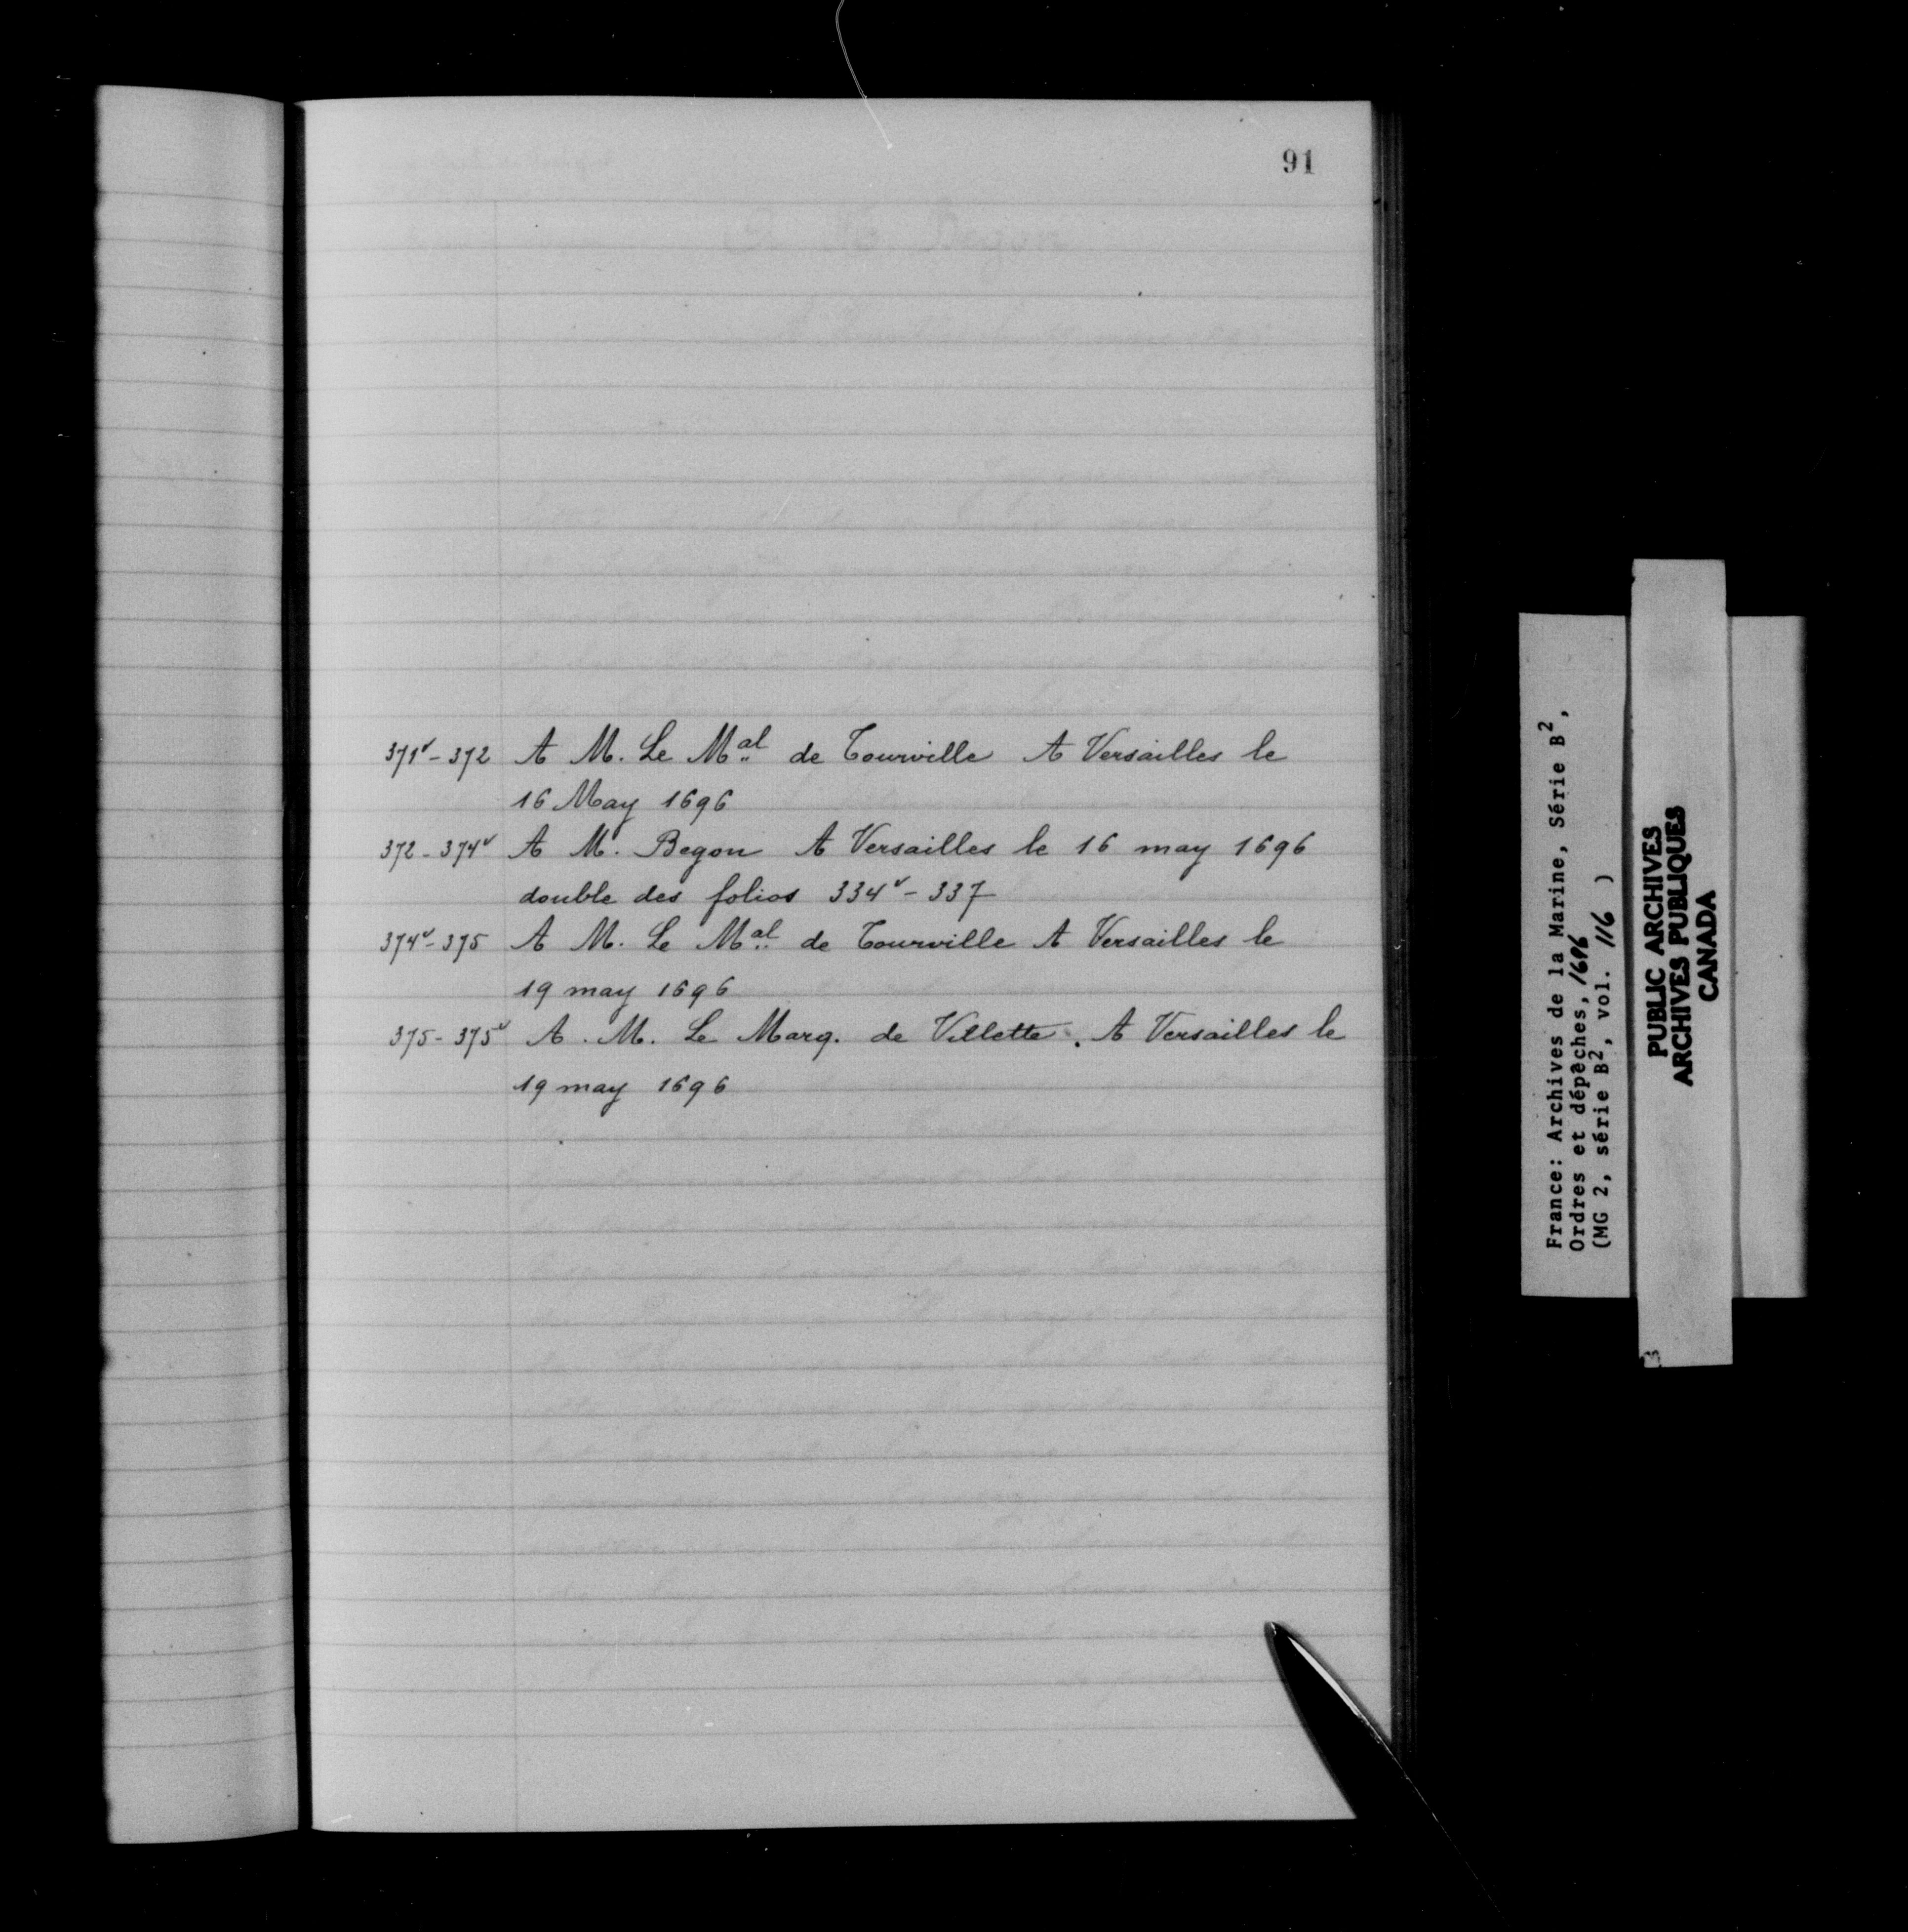 91
371v - 372 A M. Le Mal de Tourville A Versailles le
16 May 1696
372 - 374v A M. Begon A Versailles le 16 may 1696
double des folios 334v - 337
374v - 375 A M. Le Mal de Tourville A Versailles le
19 may 1696
375 - 375v A. M. Le Marq. de Villette. A Versailles le
19 may 1696
France: Archives de la Marine, Série B2,
Ordres et dépêches, 1696
(MG 2, série B2, vol. 116 )
PUBLIC ARCHIVES
ARCHIVES PUBLIQUES
CANADA